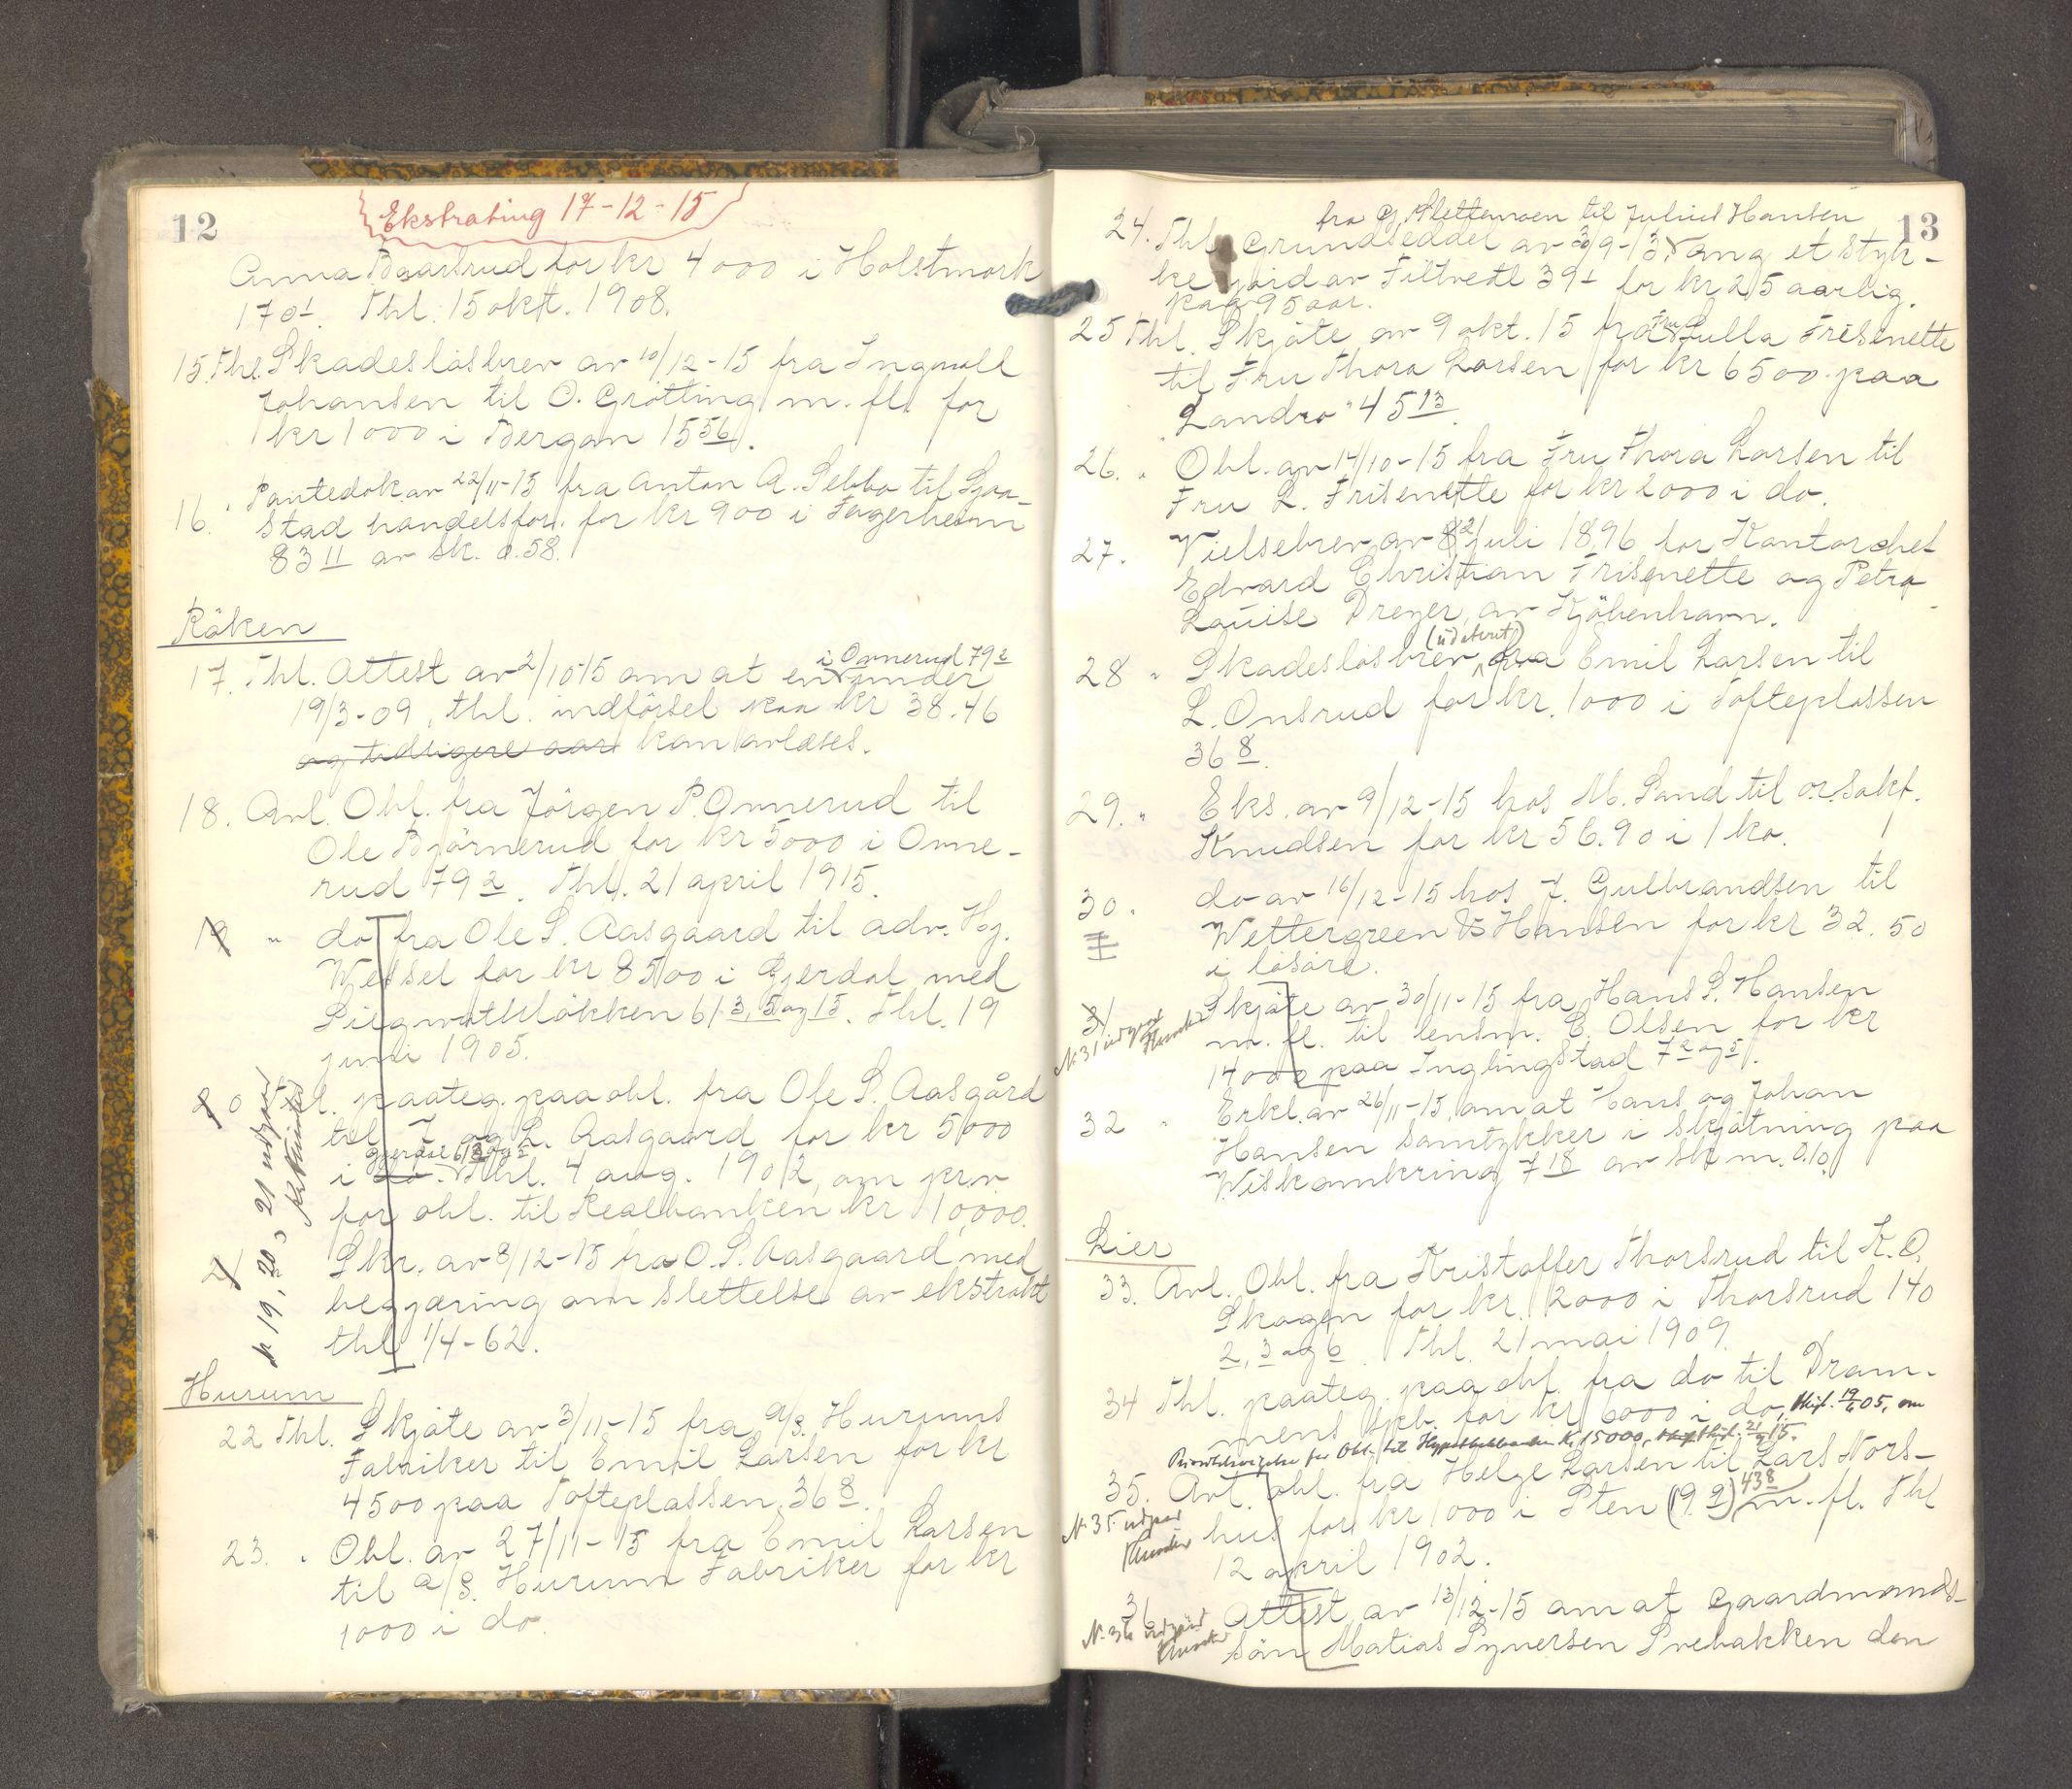 12
Ekstrating 17-12-15
Anna Baarsrud for kr 4000 i Holstmork
170 1. Thl. 15 okt. 1908.
15. Thl. Skadeslösbrev av 10/12-15 fra Ingvall
Johansen til O. Grötting m. fl. for
kr 1000 i Bergan 15 56.
16. " Pantedok. av 22/11-15 fra Anton A. Sebbo til Sjaa-
stad handelsfor. for kr 900 i Fagerheim
83 11 av sk. 0.58.
Röken
17. Thl. Attest av 2/10-15 om at en i Onnerud 79 2 under
19/3-09, thl. indförsel paa kr 38.46
og tidligere aar kan avlæses.
18. Avl. Obl. fra Jörgen P. Onnerud til
Ole Björnerud for kr 5000 i Onne-
rud 79 2. Thl. 21 april 1915.
19 " do fra Ole S. Aasgaard til adv. Hj.
Wessel for kr 8500 i Gjerdal med
61 3, 5 og 15. Thl. 19
juni 1905.
20 Thl. paateg. paa obl. fra Ole S. Aasgård
til J. og L. Aasgaard for kr 5000
i do. Gjerdal Thl. 4 aug. 1902, om pr.v
for obl. til Realbanken kr 10,000.
21 Skr. av 8/12-15 fra O. S. Aasgaard med
begjæring om slettelse av ekstrakt
thl 1/4-62.
N 19, 20, 21 utgaar
Hurum
22 Thl. Skjöte av 3/11-15 fra A/S. Hurums
Fabriker til Emil Larsen for kr
4500 paa Tofteplassen 36 8.
23. " Obl. av 27/11-15 fra Emil Larsen
til A/S. Hurum Fabriker for kr
1000 i do.
13
fra G. Slettemoen til Julius Hansen
24. Thl. Grundseddel av 3/9-13 ang et styk-
ke jord av Filtvedt 39 1 for kr 25 aarlig.
paa 95 aar.
25 Thl. Skjöte av 9 okt. 15 fra Fru Julla Frisenette
til Fru Thora Larsen for kr 6500 paa
"Landro" 45 13.
26. " Obl. av 14/10-15 fra Fru Thora Larsen til
Fru L. Frisenette for kr 2000 i do.
27. Vielsebrev av 2 juli 1896 for Kontorchef
Edvard Christian Frisenette og Petra
Louise Dreyer, av Kjöbenhavn.
28 " Skadeslösbrev (udatert) fra Emil Larsen til
L. Onsrud for kr. 1000 i Tofteplassen
36 8.
29. " Eks. av 9/12-15 hos M. Sand til o.r.sakf.
Knudsen for kr 56.90 i 1 ko.
30. do av 16/12-15 hos J. Gulbrandsen til
Wettergreen & Hansen for kr 32.50
i lösöre.
31 Skjöte av 30/11-15 fra Hans S. Hansen
m. fl. til lensm. E. Olsen for kr
14000 paa Inglingstad 7 2 og 5.
N. 31 utgaar
32 " Erkl. av 26/11-15 om at Hans og Johan
Hansen samtykker i skjötning paa
7 18 av sk m. 0.10.
Lier
33. Avl. Obl. fra Kristoffer Thorsrud til K. O.
Skogen for kr. 2000 i Thorsrud 140
2, 3 og 6. Thl. 21 mai 1909.
34 Thl. paateg. paa obl. fra do til Dram-
mens spb. for kr 6000 i do, thl. 19/6 05, om
Prioritetsvigelse for Obl. til Hypothekbanken Kr. 15000, thl. 21/9 15.
35. Avl. obl. fra Helge Larsen til Lars Nors-
hus for kr 1000 i Sten (9 9) 43 8 m. fl. Thl
12 april 1902.
N. 35 utgaar
36 Attest av 13/12-15 om at gaardmands-
sön Matias Syversen Svebakken den
N. 36 utgaar